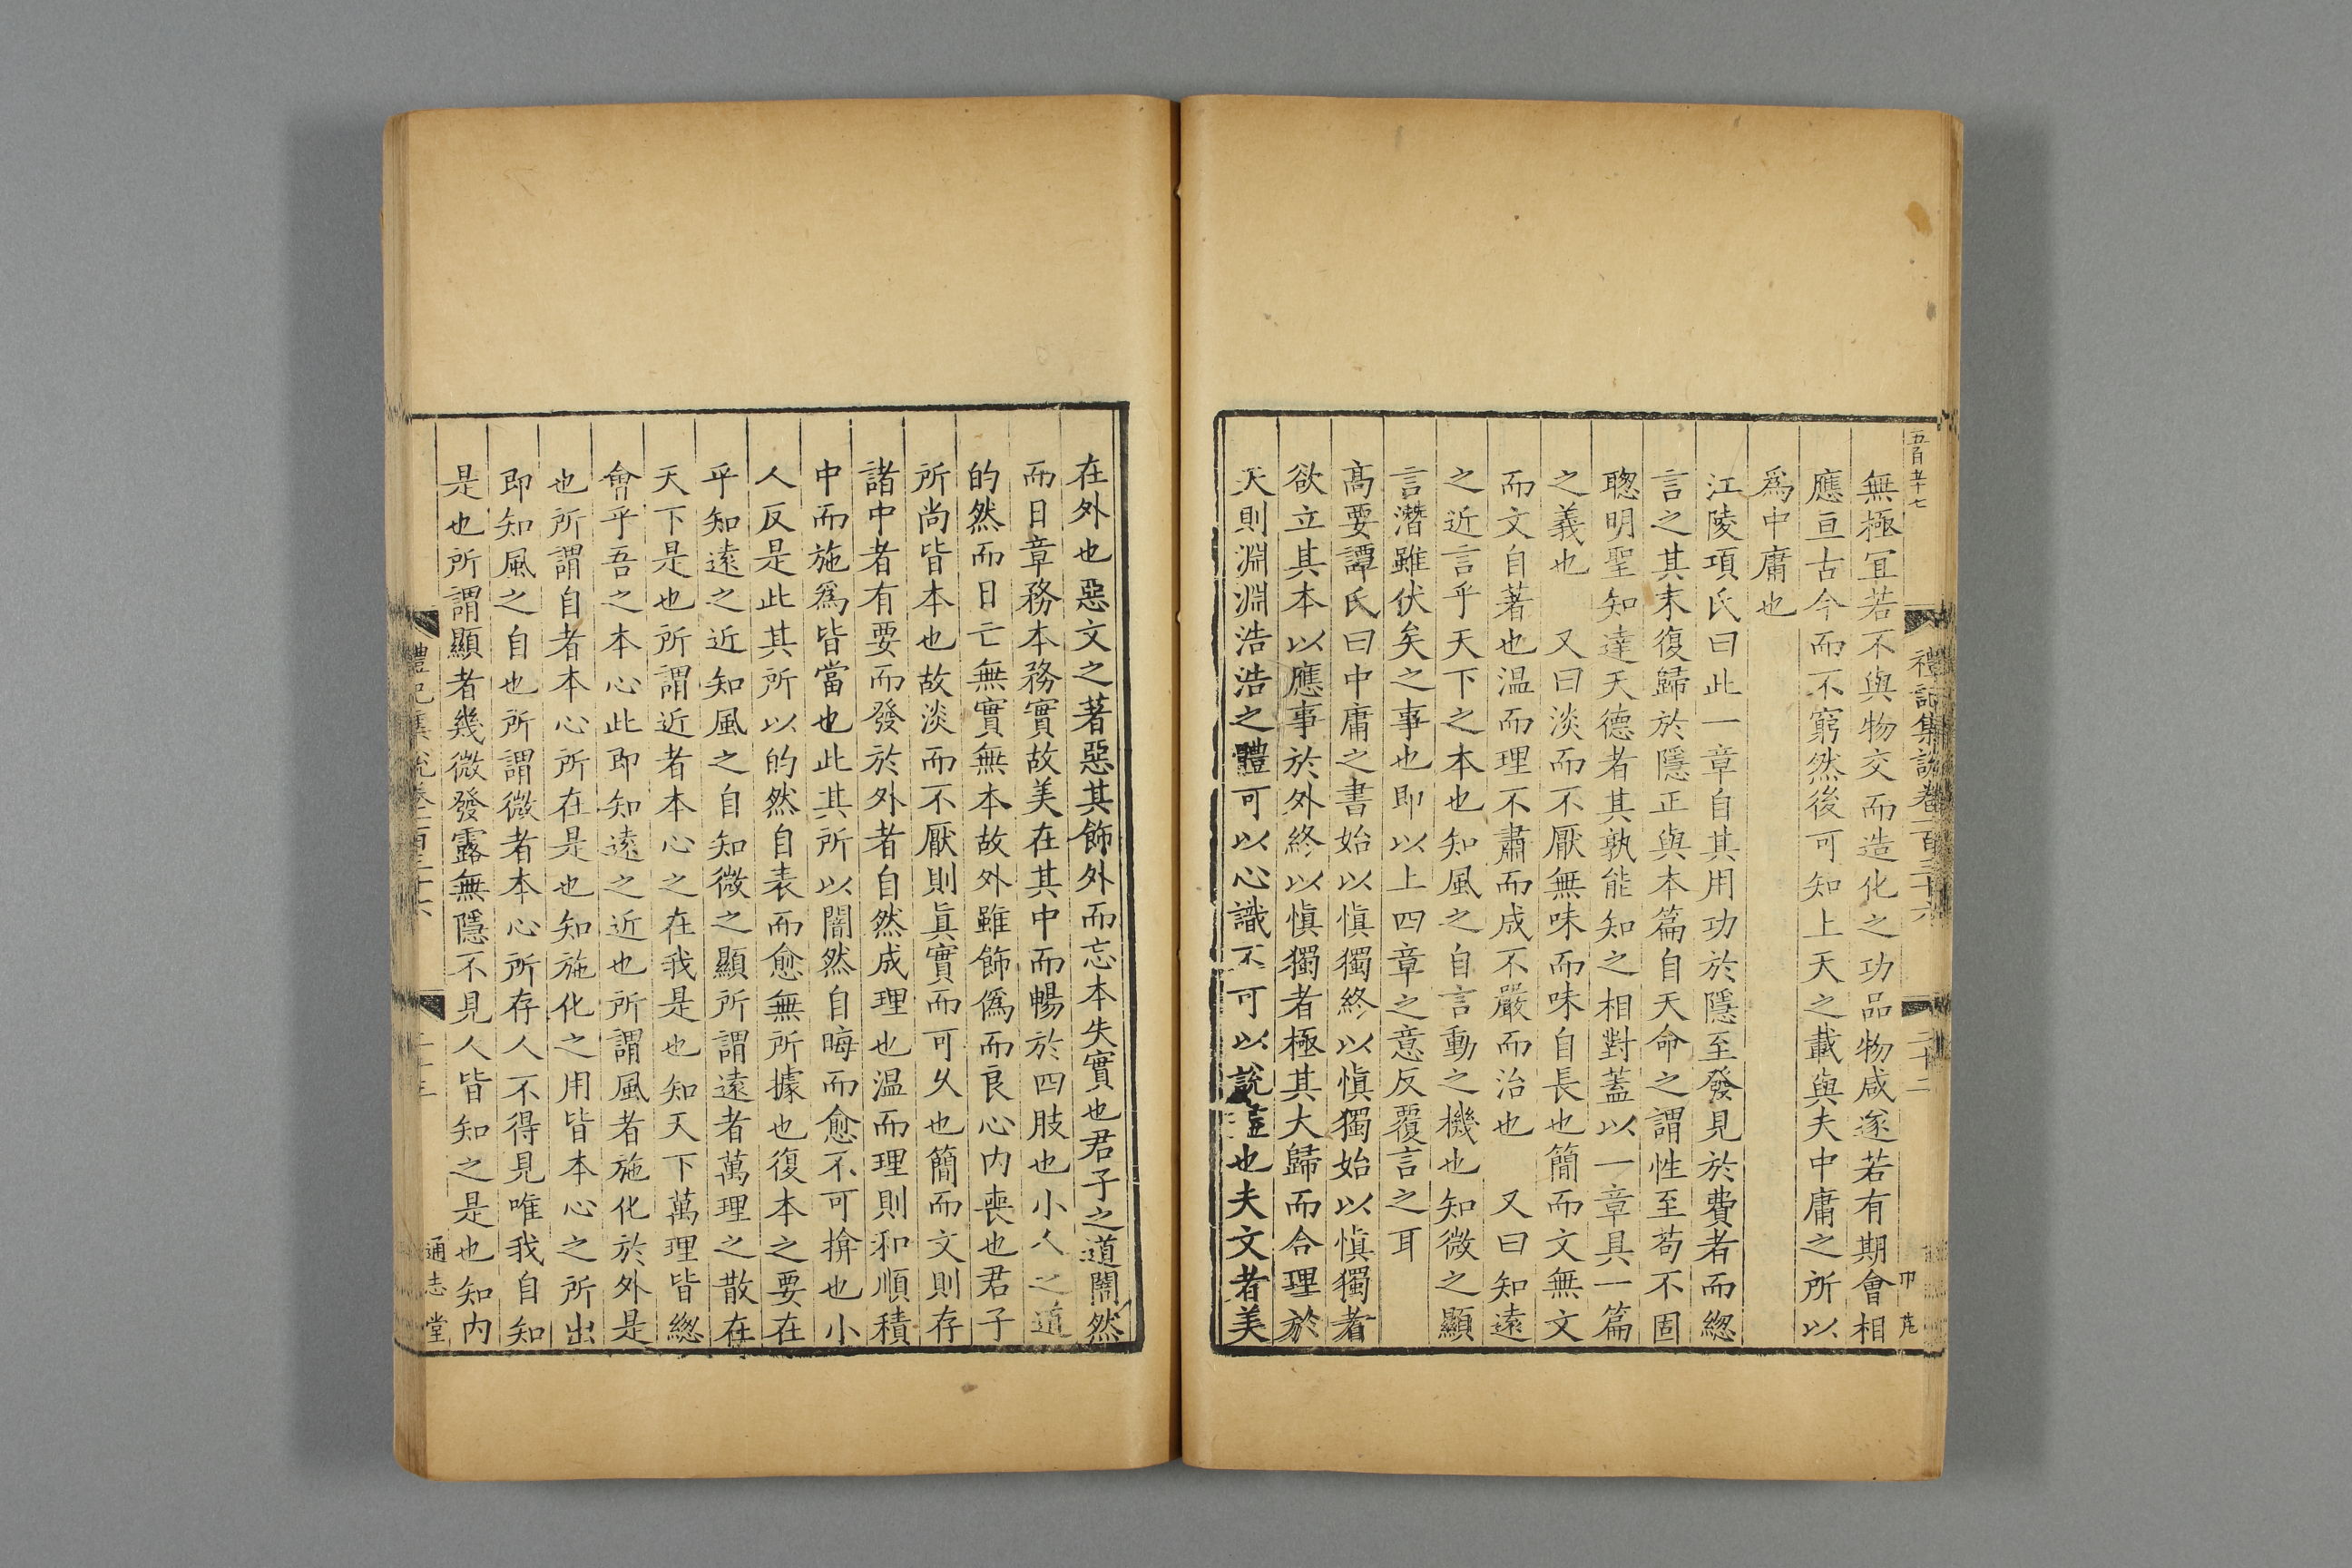 禮記集說卷一百三十六
無極冝若不與物交而造化之功品物咸遂若有期會相
應亘古今而不窮然後可知上天之載與夫中庸之所以
爲中庸也
江陵項氏曰此一章自其用功於隱至發見於費者而緫
言之其末復歸於隱正與本篇自天命之謂性至苟不固
聦明聖知達天德者其孰能知之相對蓋以一章具一篇
之義也　又曰淡而不厭無味而味自長也簡而文無文
而文自著也温而理不肅而成不嚴而治也　又曰知遠
之近言乎天下之本也知風之自言動之機也知微之顯
言潛雖伏矣之事也即以上四章之意反覆言之耳
髙要譚氏曰中庸之書始以愼獨終以愼獨始以愼獨者
欲立其本以應事於外終以愼獨者極其大歸而合理於
天則淵淵浩浩之體可以心識不可以說盡也夫文者美
在外也惡文之著惡其飾外而忘本失實也君子之道闇然
而日章務本務實故美在其中而暢於四肢也小人之道
的然而日亡無實無本故外雖飾僞而良心内喪也君子
所尚皆本也故淡而不厭則眞實而可久也簡而文則存
諸中者有要而發於外者自然成理也温而理則和順積
中而施爲皆當也此其所以闇然自晦而愈不可揜也小
人反是此其所以的然自表而愈無所據也復本之要在
乎知遠之近知風之自知微之顯所謂遠者萬理之散在
天下是也所謂近者本心之在我是也知天下萬理皆緫
會乎吾之本心此即知遠之近也所謂風者施化於外是
也所謂自者本心所在是也知施化之用皆本心之所出
即知風之自也所謂微者本心所存人不得見唯我自知
是也所謂顯者幾微發露無隱不見人皆知之是也知内
禮記集說卷一百三十六
通志堂